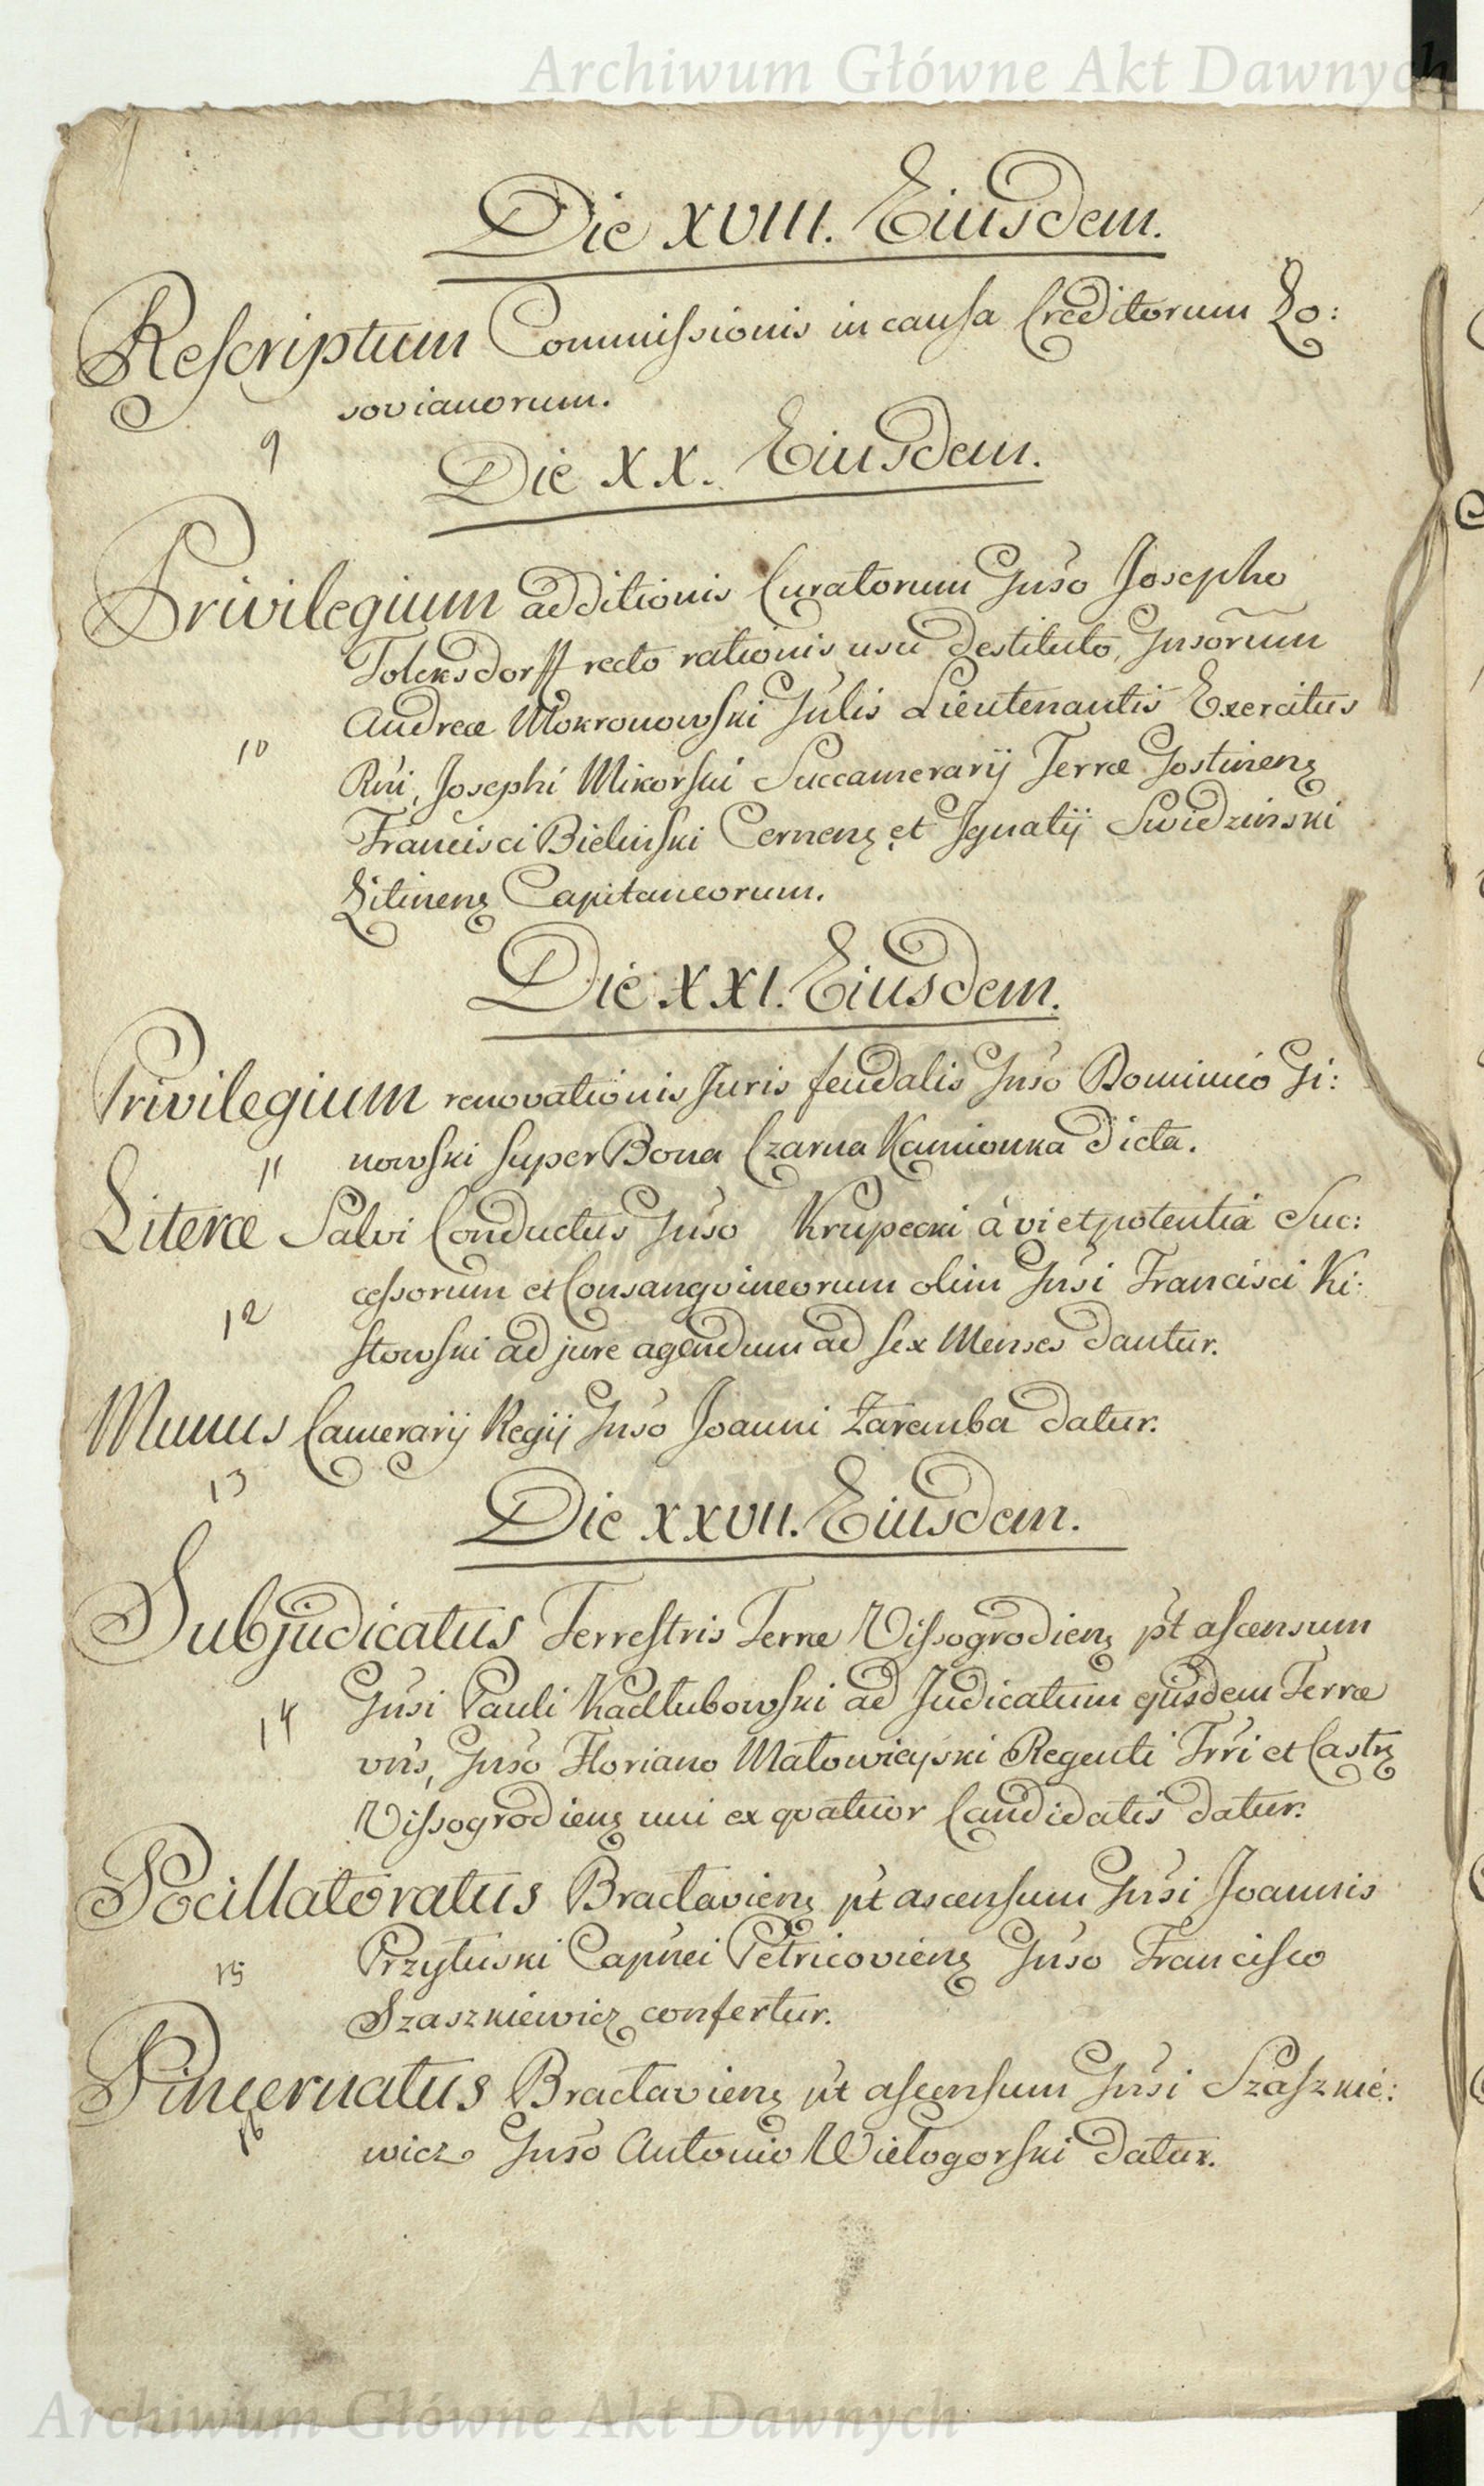 Archiwum Główne Akt Dawnych
Die XVIII. Eiusdem.
Rescriptum Commissionis in causa Creditorum Lo:
sovianorum.
9
Die XX. Eiusdem.
Privilegium additionis Curatorum Gnso Josepho
Tolcksdorff recto rationis usu destituto, Gnsorum
Andreæ Mokronowski Gnlis Lieutenantis Exercitus
10
Rni, Josephi Mikorski Succamerarij Terræ Gostinen
Francisci Bielinski Cernen et Ignatij Swidzinski
Litinen Capitaneorum.
Die XXI. Eiusdem.
Privilegium renovationis Juris feudalis Gnso Dominico Gi:
nowski super Bona Czarna Kamionka dicta.
11
Literæ Salvi Conductus Gnso Krupecki à vi et potentia Suc:
cessorum et Consangvineorum olim Gnsi Francisci Ki:
12
stowski ad jure agendum ad sex Menses dantur.
Munus Camerarij Regij Gnso Joanni Zaremba datur.
13
Die XXVII. Eiusdem.
Subjudicatus Terrestris Terræ Vissogrodien pt ascensum
Gnsi Pauli Kadłubowski ad Judicatum ejusdem Terræ
14
vns, Gnso Floriano Małowieyski Regenti Trri et Castr
Vissogrodien uni ex qvatuor Candidatis datur.
Pocillatoratus Braclavien pt ascensum Gnsi Joannis
Przyłuski Capnei Petricovien Gnso Francisco
15
Szaszkiewicz confertur.
Pincernatus Braclavien pt ascensum Gnsi Szaszkie:
16
wicz Gnso Antonio Wielogorski datur.
Archiwum Główne Akt Dawnych